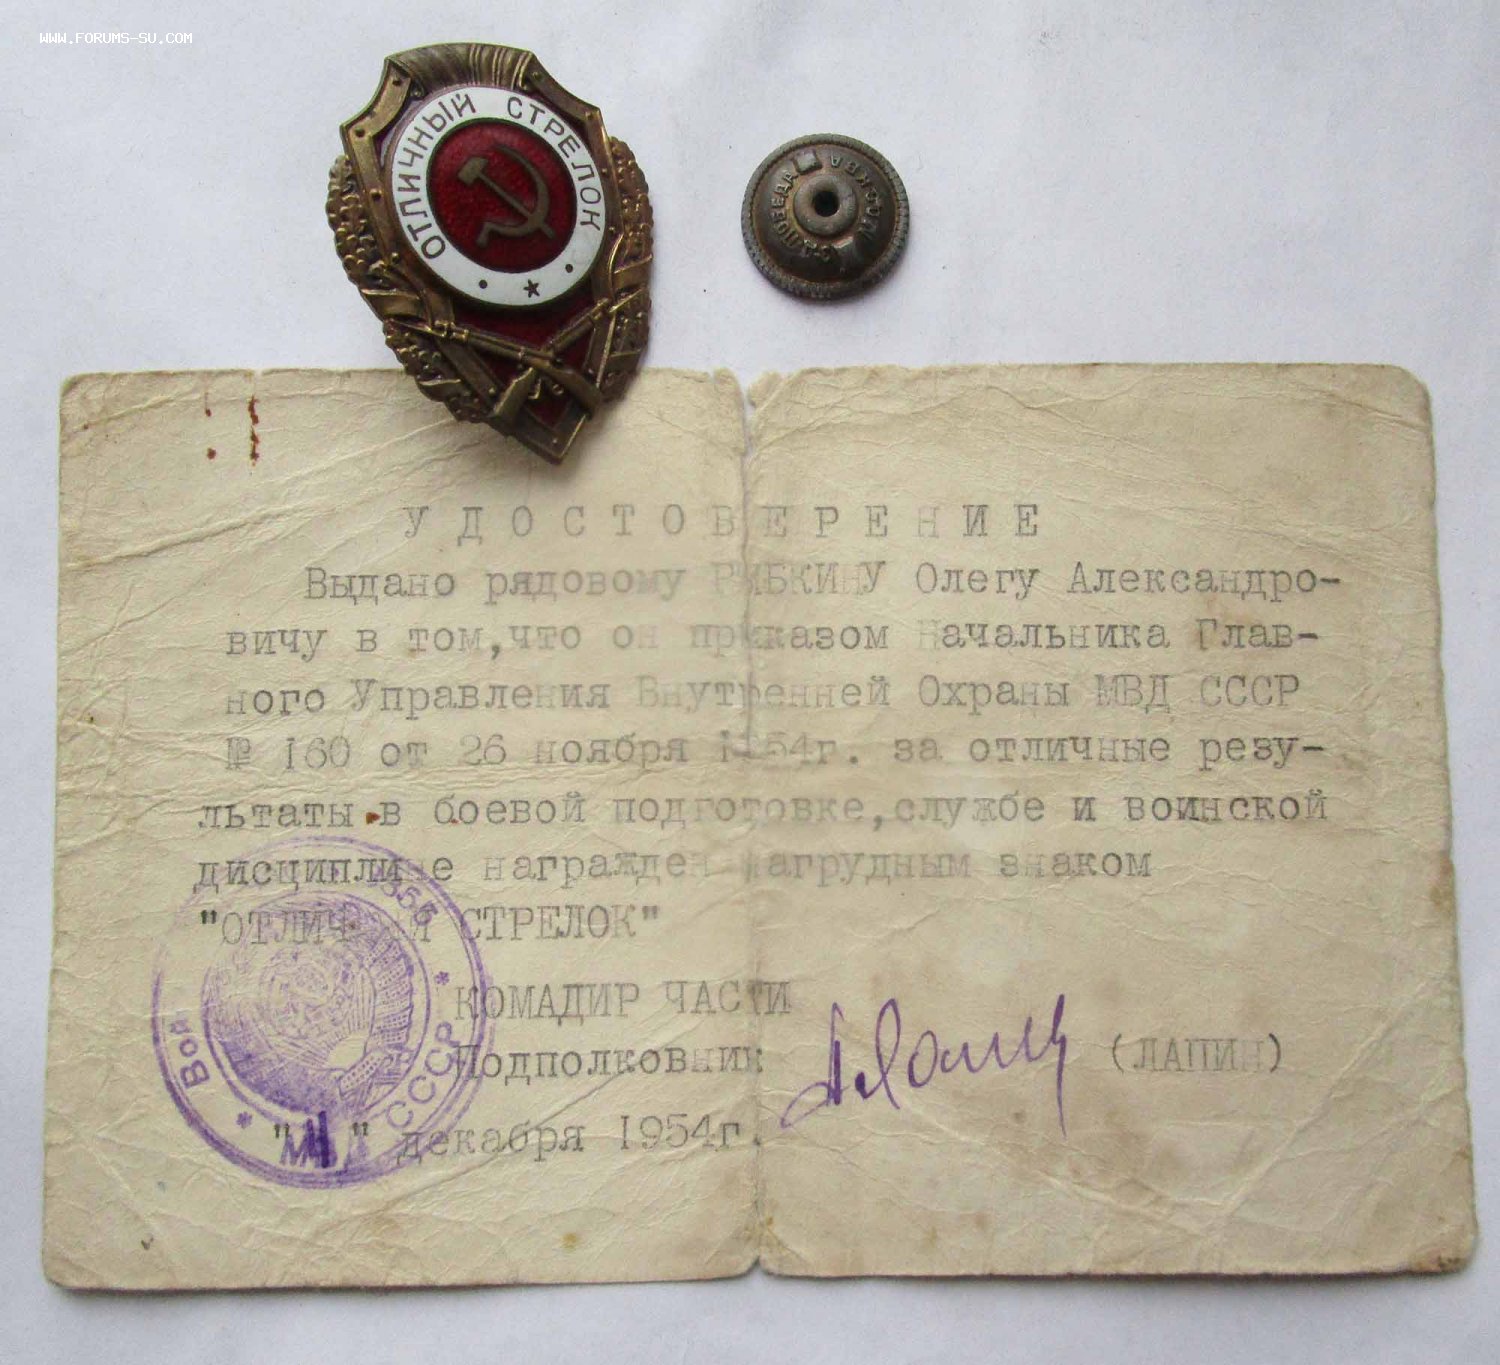 WWW.FORUMS-SU.COM
ОТЛИЧНЫЙ СТРЕЛОК
З-Д ПОБЕДА МОСКВА
УДОСТОВЕРЕНИЕ
Выдано рядовому РЫБКИНУ Олегу Александро-
вичу в том,что он приказом Начальника Глав-
ного Управления Внутренней Охраны МВД СССР
№ 160 от 26 ноября 1954г. за отличные резу-
льтаты в боевой подготовке,службе и воинской
дисциплине награжден нагрудным знаком
"ОТЛИЧНЫЙ СТРЕЛОК"
КОМАДИР ЧАСТИ
Подполковник (ЛАПИН)
" " декабря 1954г.
МВД СССР